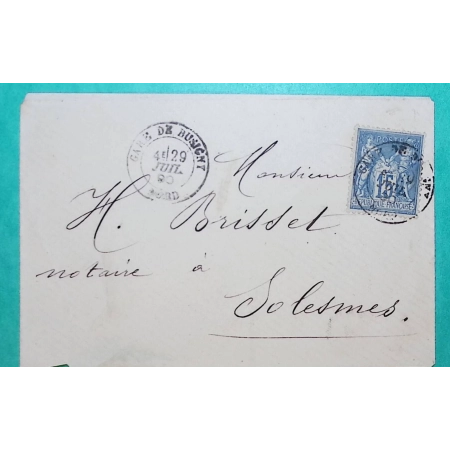 GARE DE BUSIGNY
29
JUIL.
90
NORD
Monsieur
H. Brisset
notaire à
Solesmes.
POSTES
15
RÉPUBLIQUE FRANÇAISE
GARE DE